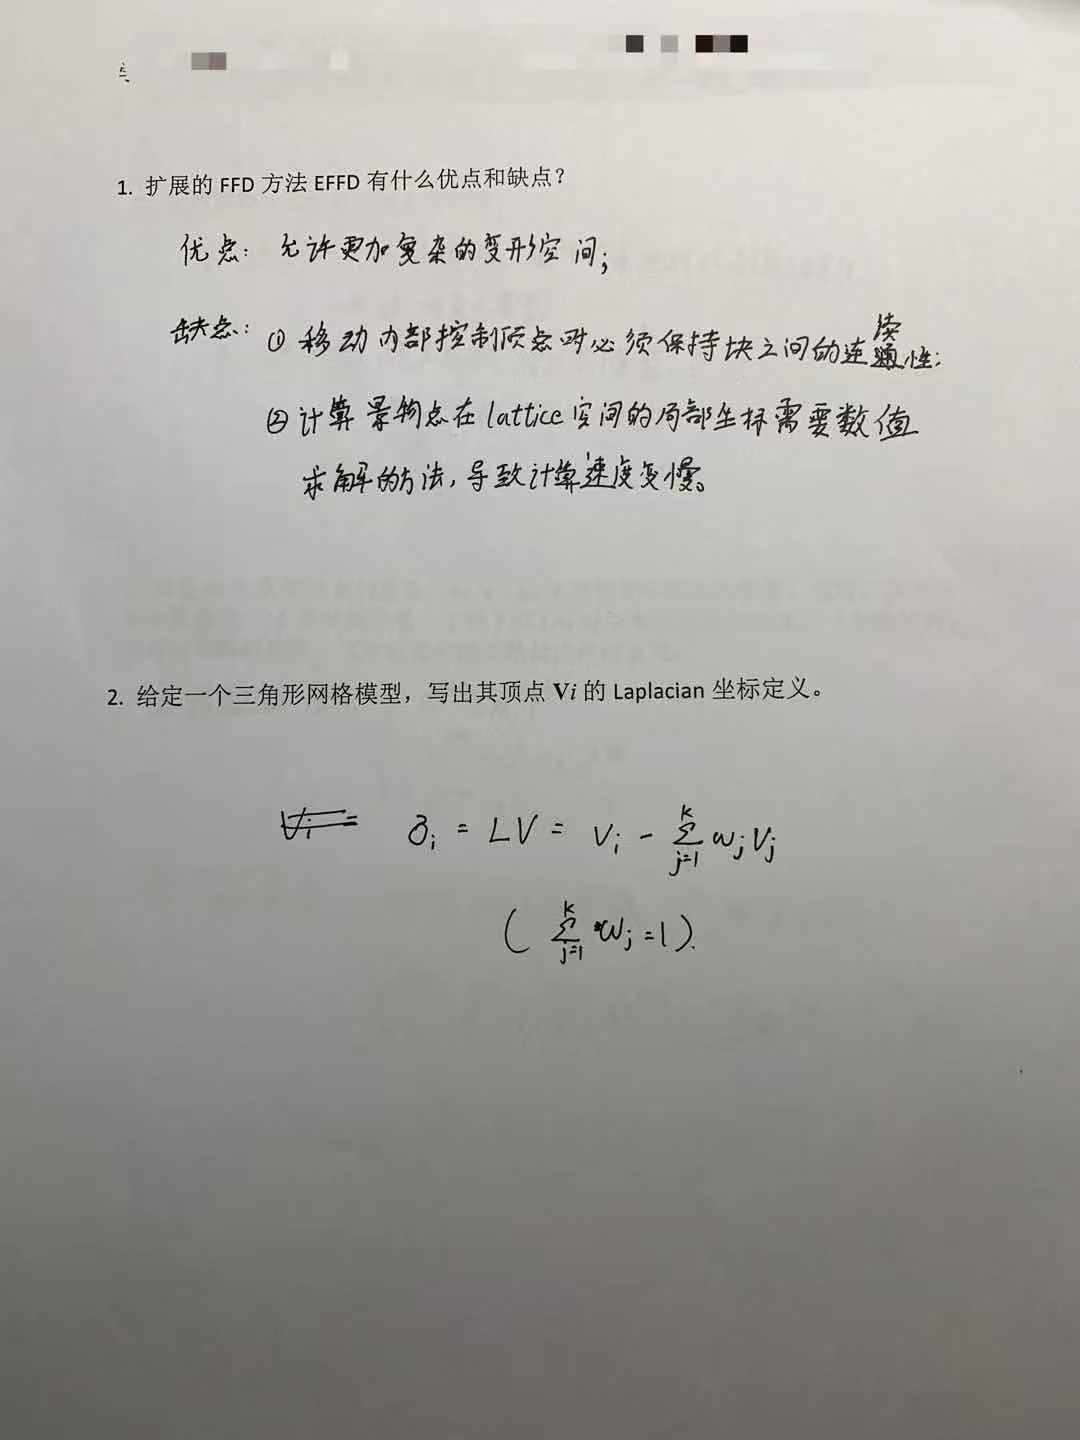 1. 扩展的 FFD 方法 EFFD 有什么优点和缺点？
优点：允许更加复杂的变形空间；
缺点：① 移动内部控制顶点时必须保持块之间的连续性；
② 计算景物点在 lattice 空间的局部坐标需要数值
求解的方法，导致计算速度变慢。
2. 给定一个三角形网格模型，写出其顶点 Vi 的 Laplacian 坐标定义。
δᵢ = LV = Vᵢ - Σ_{j=1}^{k} wⱼVⱼ
( Σ_{j=1}^{k} wⱼ = 1 ).